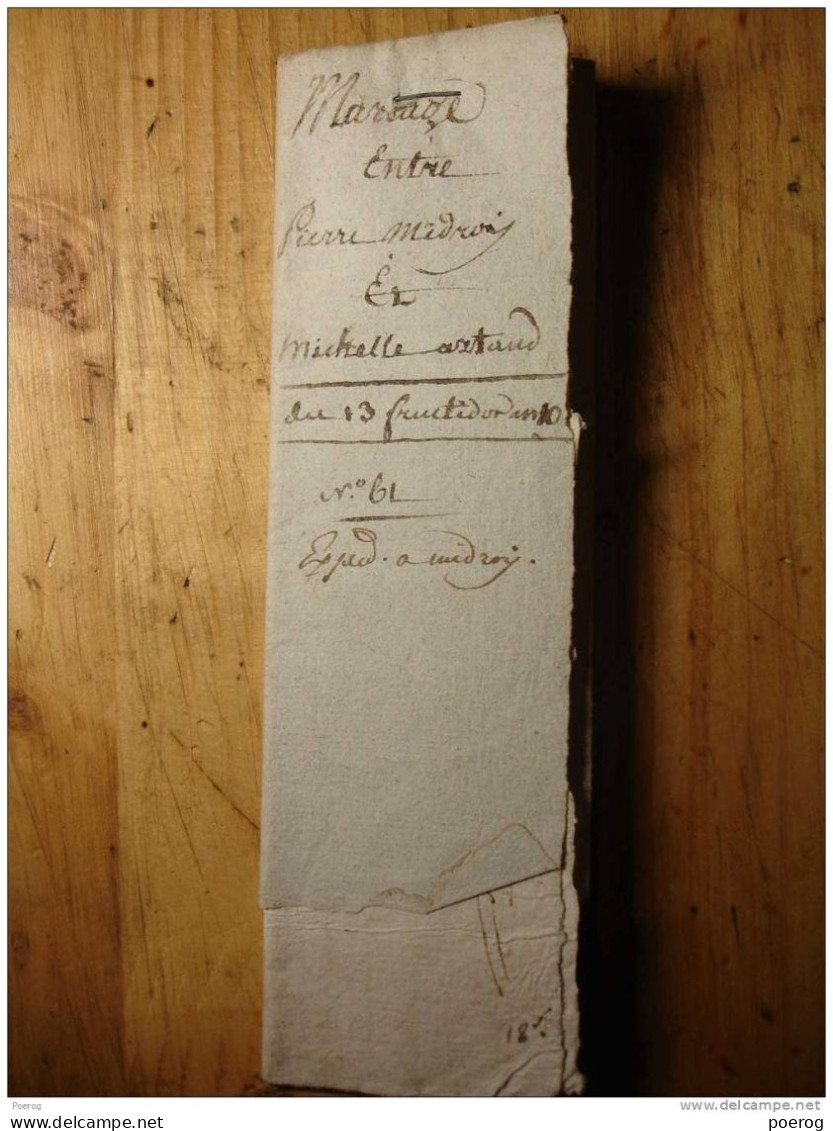 Mariage
Entre
Pierre Medroy
Et
Michelle artaud
du 13 fructidor an 10
N.° 61
Exped. a medroy.
18
Poerog
delcampe.net
poerog